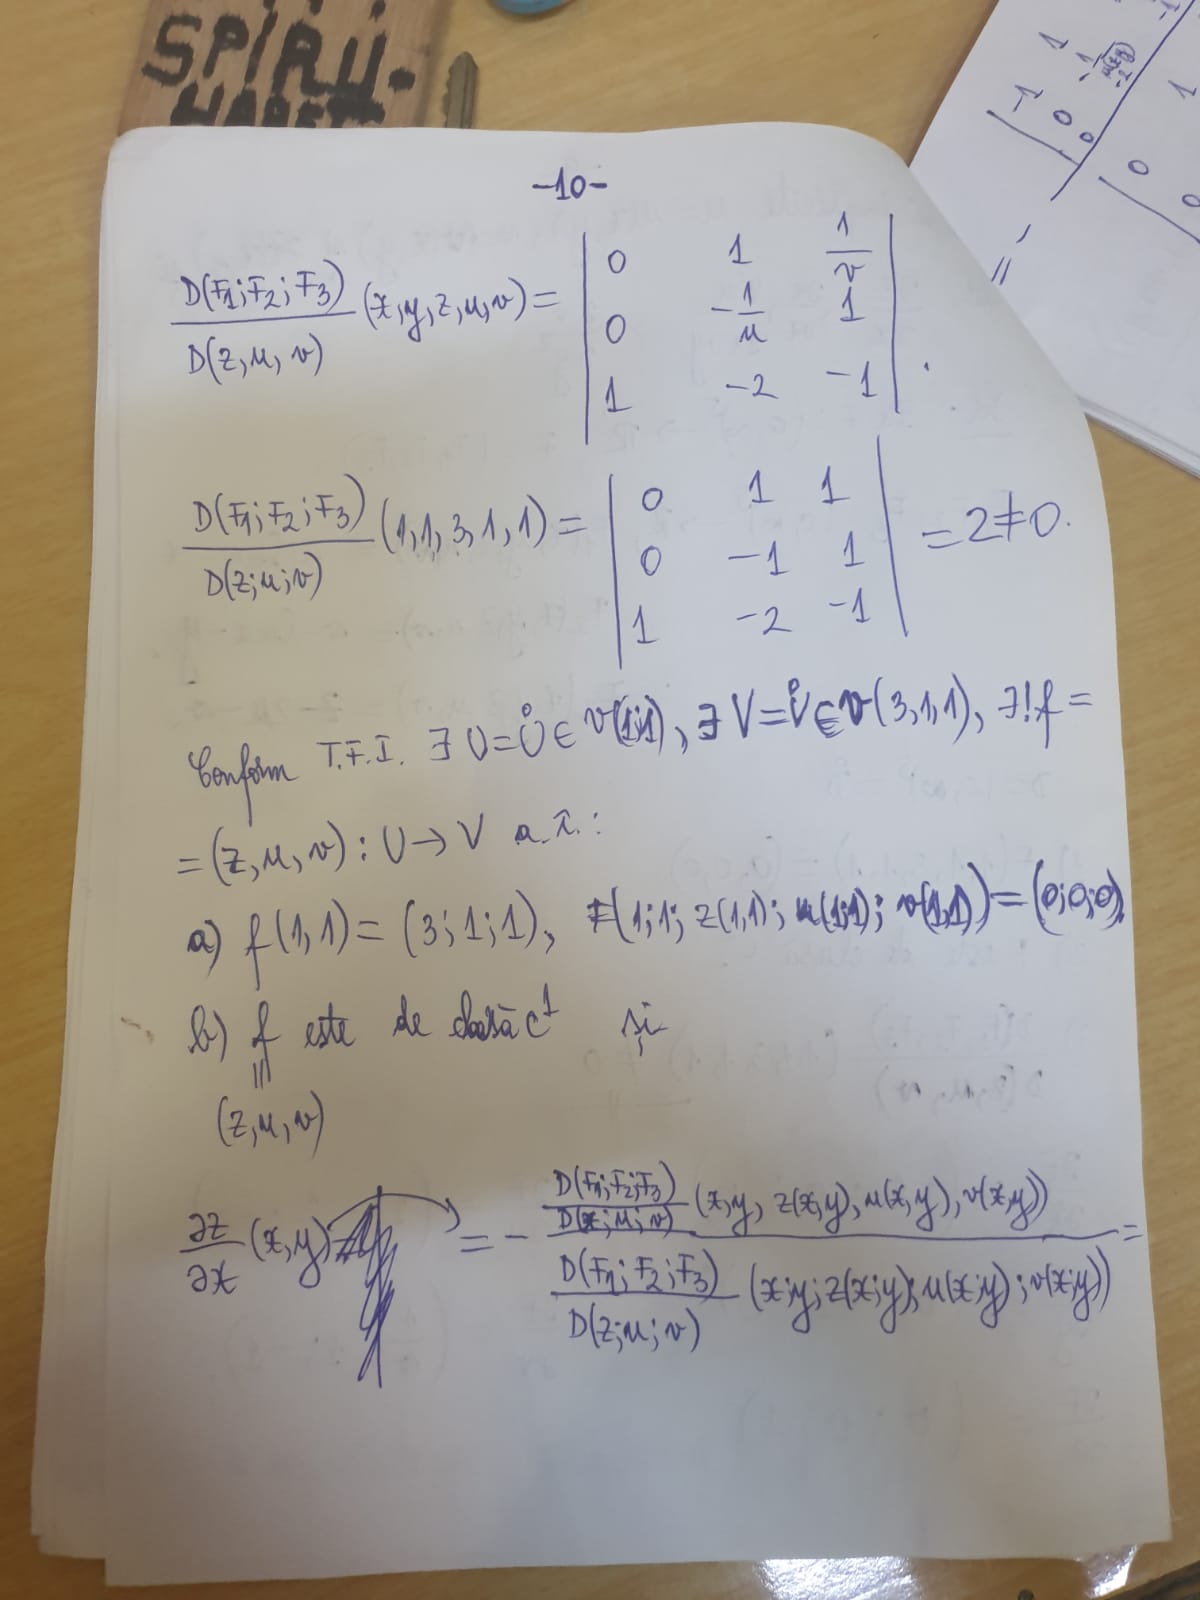 SPIRU-
HARET
-10-
D(F1;F2;F3)/D(z,u,v) (x,y,z,u,v) = | 0 1 1/v |
| 0 -1/u 1 |
| 1 -2 -1 | .
D(F1;F2;F3)/D(z;u;v) (1,1,3,1,1) = | 0 1 1 |
| 0 -1 1 | = 2≠0.
| 1 -2 -1 |
Conform T.F.I. ∃ U=Ů∈ V(1;1), ∃ V=V̊∈V(3,1,1), ∃! f =
= (z,u,v) : U→V a.î. :
a) f(1,1) = (3;1;1), F(1;1; z(1,1); u(1;1); v(1,1)) = (0;0;0).
b) f este de clasă C¹ și
||
(z,u,v)
∂z/∂x (x,y) = - D(F1;F2;F3)/D(x;u;v) (x,y, z(x,y), u(x,y), v(x,y)) / D(F1;F2;F3)/D(z;u;v) (x;y; z(x;y); u(x;y); v(x;y)) =